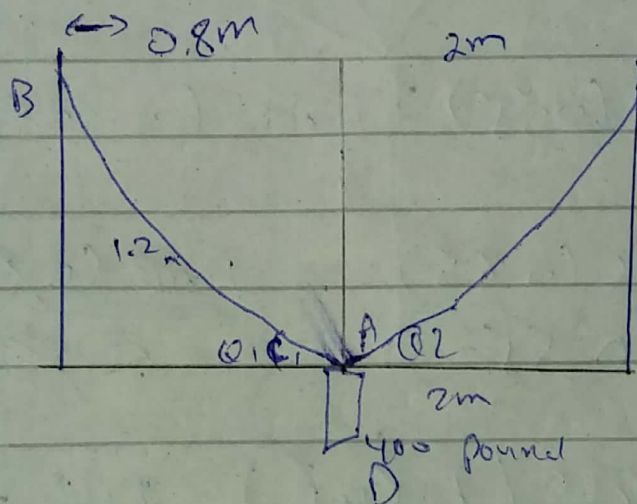 0.8m
2m
B
1.2m
A
θ1
θ2
2m
400 pound
D